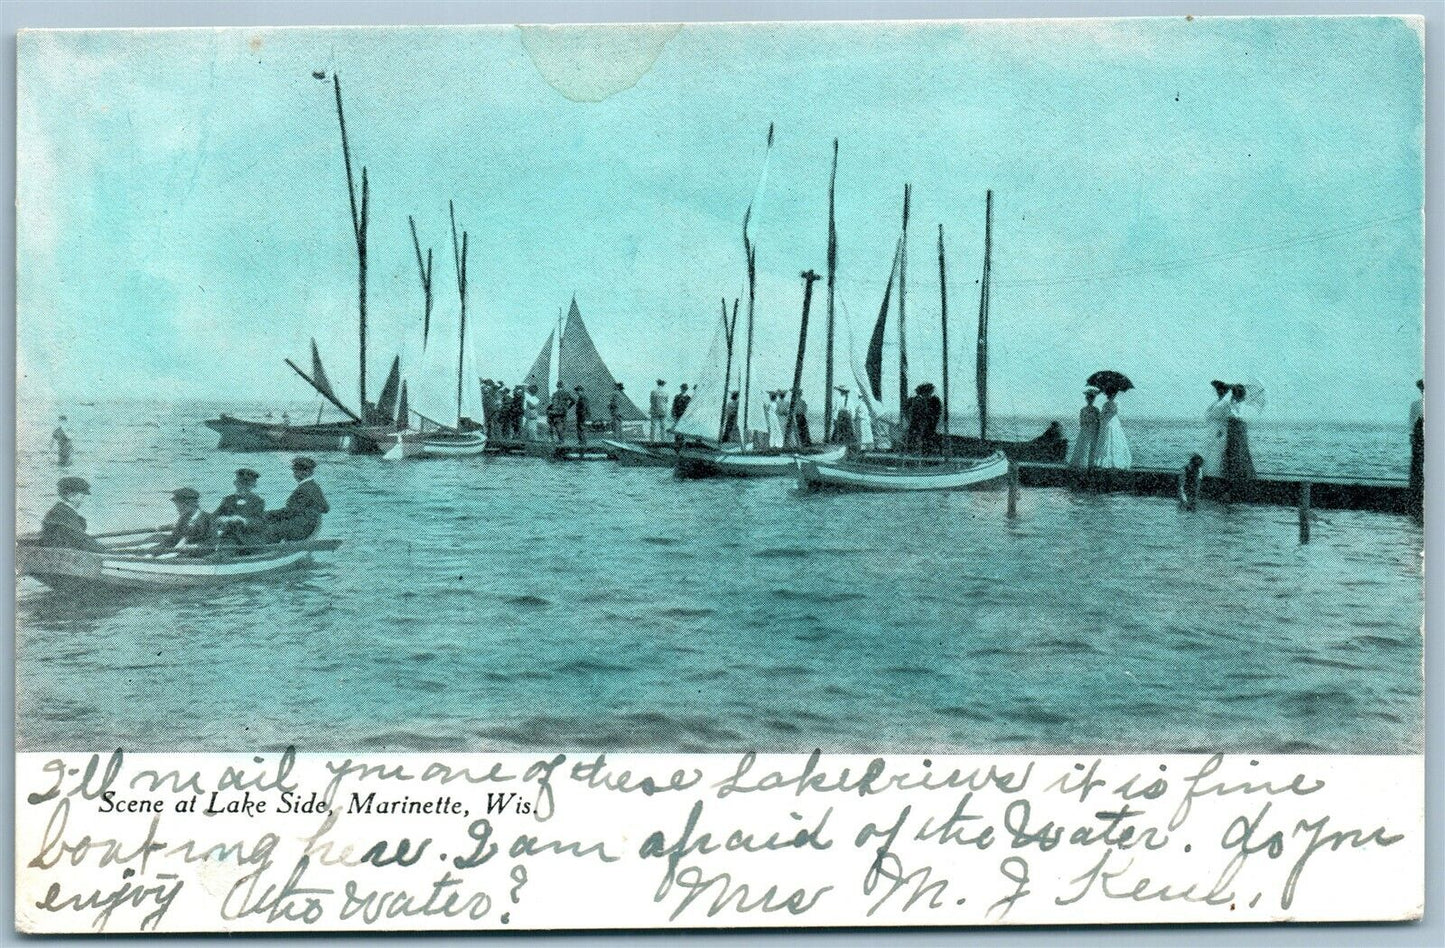 I'll mail you one of these Lake Views it is fine
Scene at Lake Side, Marinette, Wis.
boating here. I am afraid of the Water. do you
enjoy the water? Mrs M. J.